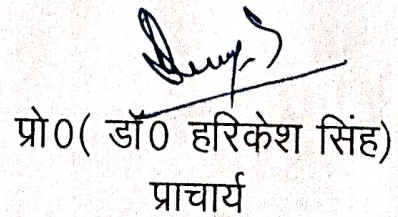 प्रो0( डॉ0 हरिकेश सिंह)
प्राचार्य